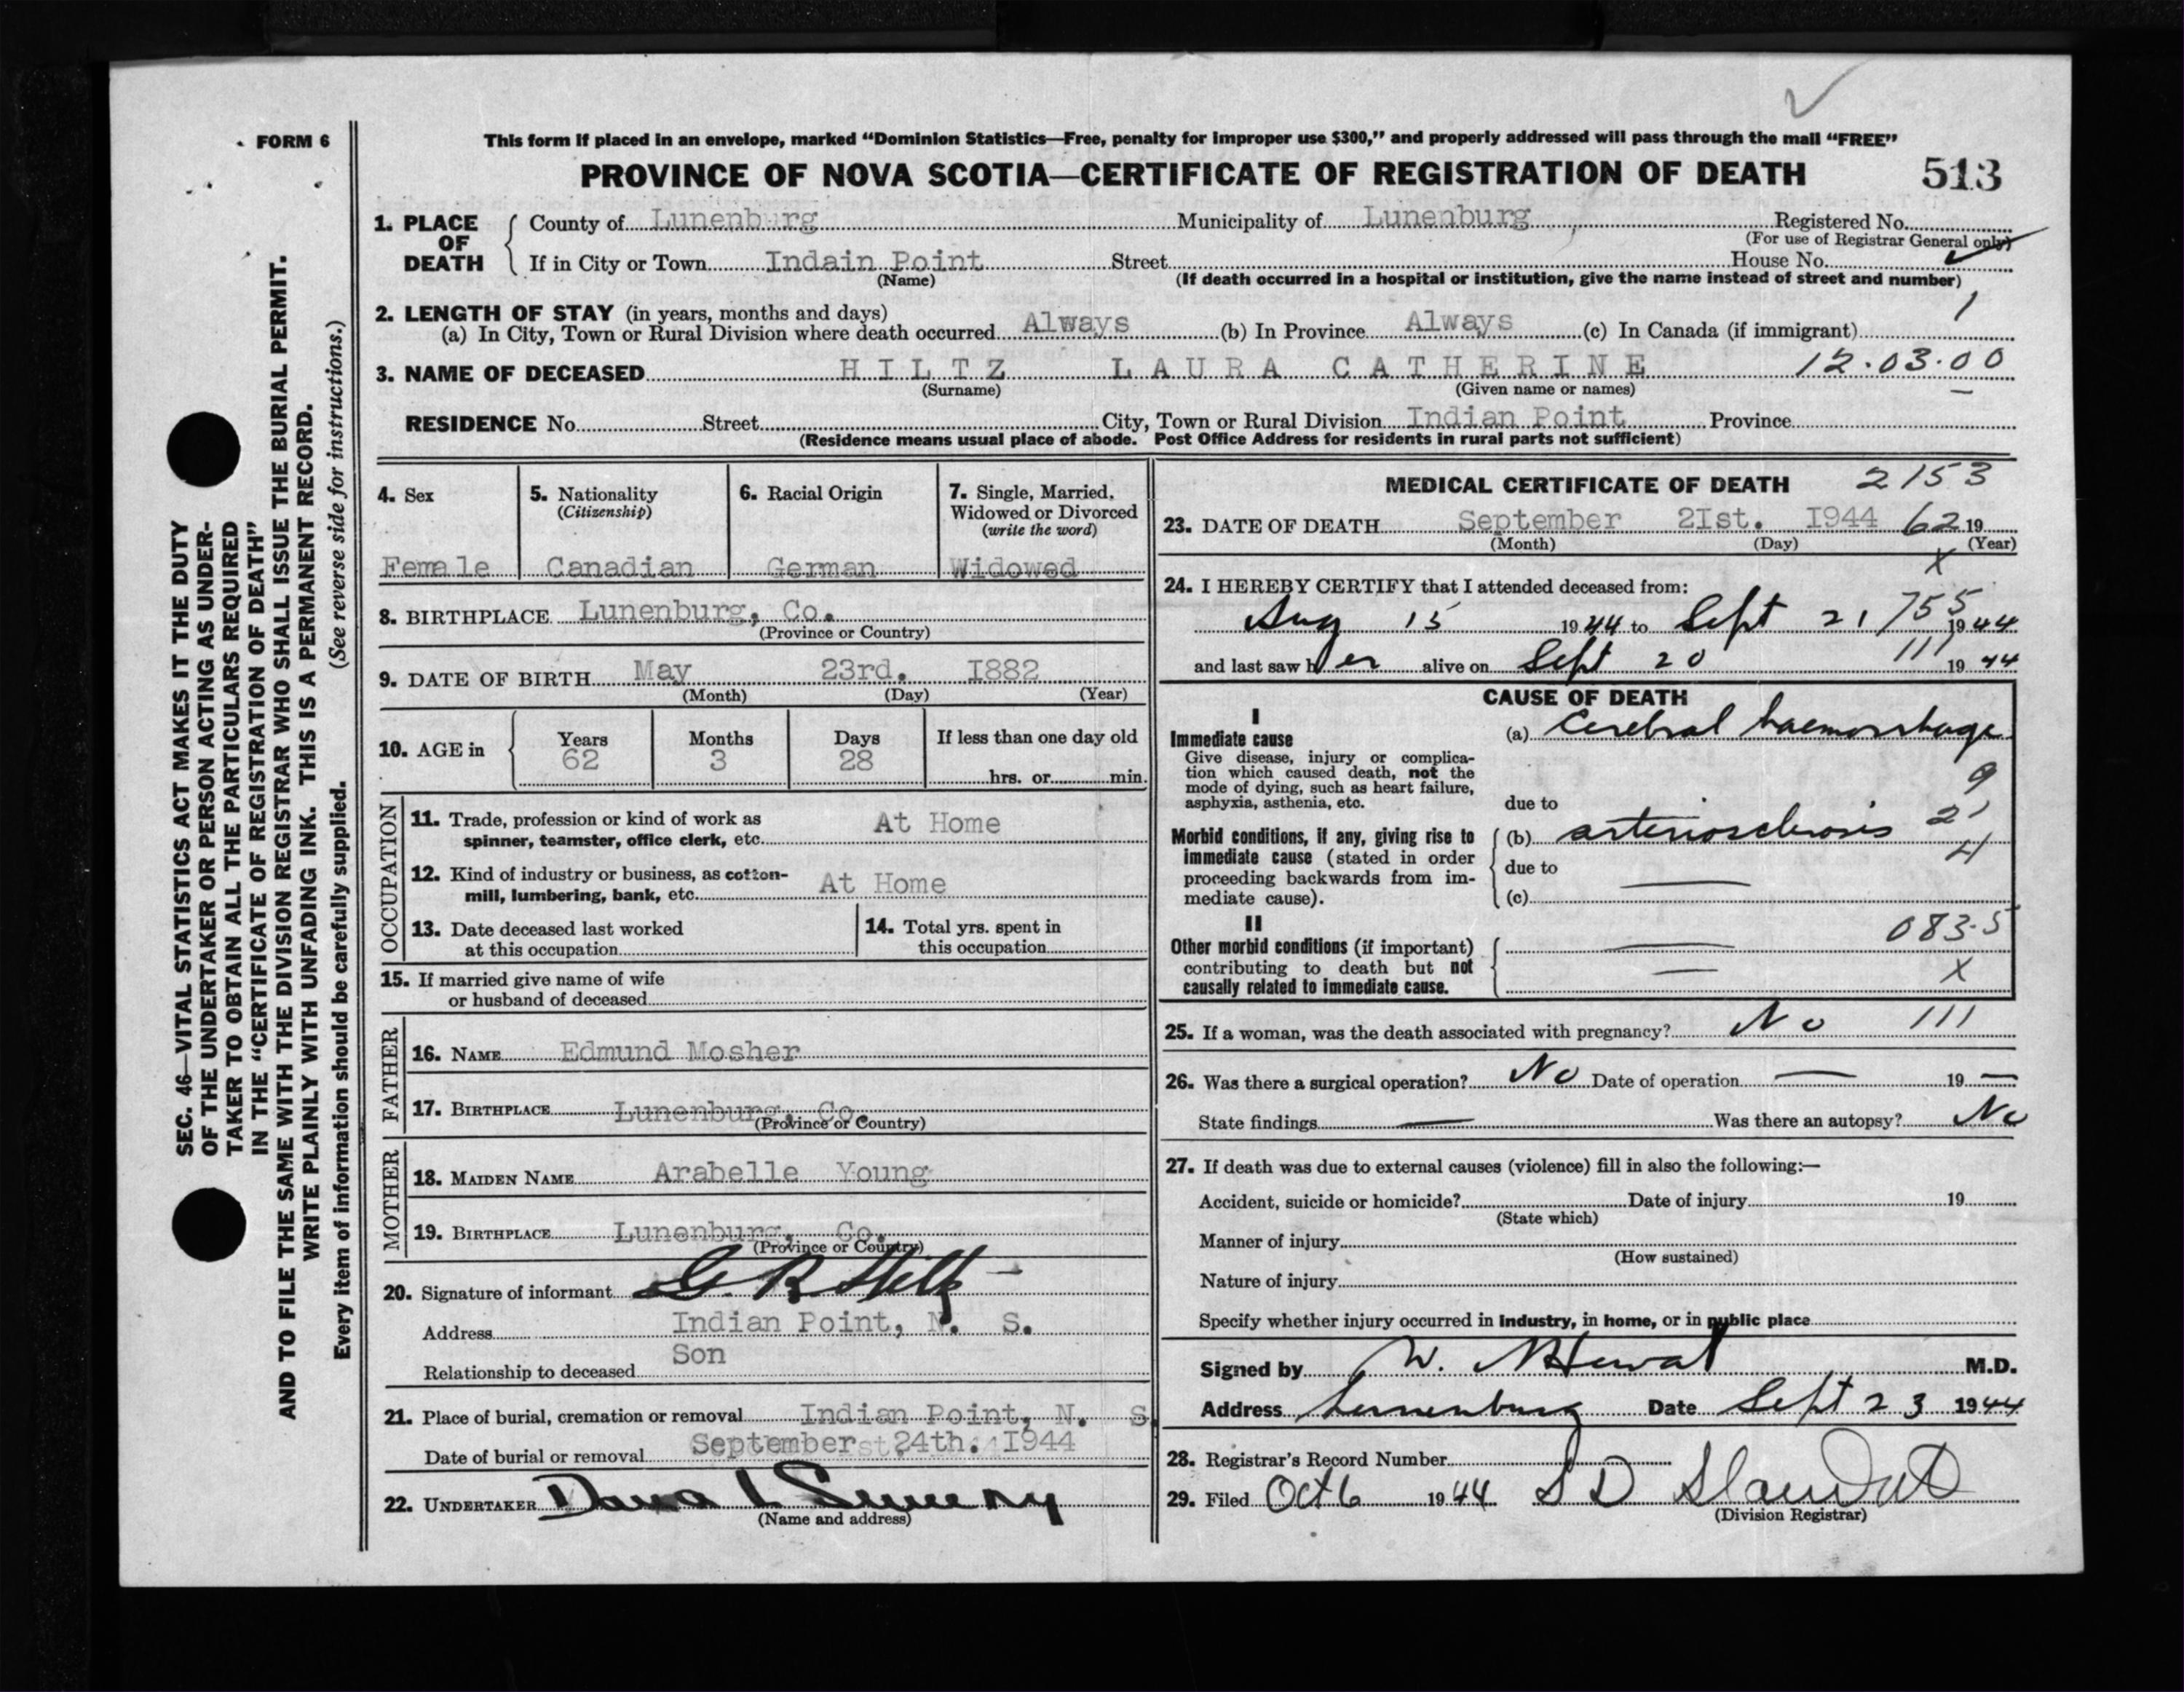 FORM 6
This form if placed in an envelope, marked “Dominion Statistics—Free, penalty for improper use $300,” and properly addressed will pass through the mail “FREE”
PROVINCE OF NOVA SCOTIA—CERTIFICATE OF REGISTRATION OF DEATH 513
SEC. 46—VITAL STATISTICS ACT MAKES IT THE DUTY
OF THE UNDERTAKER OR PERSON ACTING AS UNDER-
TAKER TO OBTAIN ALL THE PARTICULARS REQUIRED
IN THE “CERTIFICATE OF REGISTRATION OF DEATH”
AND TO FILE THE SAME WITH THE DIVISION REGISTRAR WHO SHALL ISSUE THE BURIAL PERMIT.
WRITE PLAINLY WITH UNFADING INK. THIS IS A PERMANENT RECORD.
Every item of information should be carefully supplied. (See reverse side for instructions.)
1. PLACE OF DEATH County of Lunenburg Municipality of Lunenburg Registered No.
(For use of Registrar General only)
If in City or Town Indain Point Street House No.
(Name) (If death occurred in a hospital or institution, give the name instead of street and number)
2. LENGTH OF STAY (in years, months and days) 1
(a) In City, Town or Rural Division where death occurred Always (b) In Province Always (c) In Canada (if immigrant)
3. NAME OF DECEASED HILTZ LAURA CATHERINE 12.03.00
(Surname) (Given name or names)
RESIDENCE No. Street City, Town or Rural Division Indian Point Province
(Residence means usual place of abode. Post Office Address for residents in rural parts not sufficient)
4. Sex
Female
5. Nationality
(Citizenship)
Canadian
6. Racial Origin
German
7. Single, Married,
Widowed or Divorced
(write the word)
Widowed
8. BIRTHPLACE Lunenburg, Co.
(Province or Country)
9. DATE OF BIRTH May 23rd. I882
(Month) (Day) (Year)
10. AGE in Years Months Days If less than one day old
62 3 28
hrs. or min.
OCCUPATION
11. Trade, profession or kind of work as
spinner, teamster, office clerk, etc. At Home
12. Kind of industry or business, as cotton-
mill, lumbering, bank, etc. At Home
13. Date deceased last worked
at this occupation
14. Total yrs. spent in
this occupation
15. If married give name of wife
or husband of deceased
FATHER
16. NAME Edmund Mosher
17. BIRTHPLACE Lunenburg, Co.
(Province or Country)
MOTHER
18. MAIDEN NAME Arabelle Young
19. BIRTHPLACE Lunenburg, Co.
(Province or Country)
20. Signature of informant G. R Hiltz
Address Indian Point, N. S.
Relationship to deceased Son
21. Place of burial, cremation or removal Indian Point, N. S.
Date of burial or removal September 24th. I944
22. UNDERTAKER
(Name and address)
MEDICAL CERTIFICATE OF DEATH 2153
23. DATE OF DEATH September 2Ist. I944 62 19
(Month) (Day) (Year)
X
24. I HEREBY CERTIFY that I attended deceased from:
Aug 15 1944 to Sept 21 755 1944
and last saw her alive on Sept 20 111 1944
CAUSE OF DEATH
I
Immediate cause
Give disease, injury or complica-
tion which caused death, not the
mode of dying, such as heart failure,
asphyxia, asthenia, etc.
(a) Cerebral haemorrhage
9
due to
Morbid conditions, if any, giving rise to
immediate cause (stated in order
proceeding backwards from im-
mediate cause).
(b) arteriosclerosis
due to
(c)
II
Other morbid conditions (if important)
contributing to death but not
causally related to immediate cause.
083.5
X
25. If a woman, was the death associated with pregnancy? No 111
26. Was there a surgical operation? No Date of operation — 19 —
State findings — Was there an autopsy? No
27. If death was due to external causes (violence) fill in also the following:—
Accident, suicide or homicide? Date of injury 19
(State which)
Manner of injury
(How sustained)
Nature of injury
Specify whether injury occurred in industry, in home, or in public place
Signed by W. M.D.
Address Lunenburg Date Sept 23 1944
28. Registrar's Record Number
29. Filed Oct 6 1944 S D
(Division Registrar)